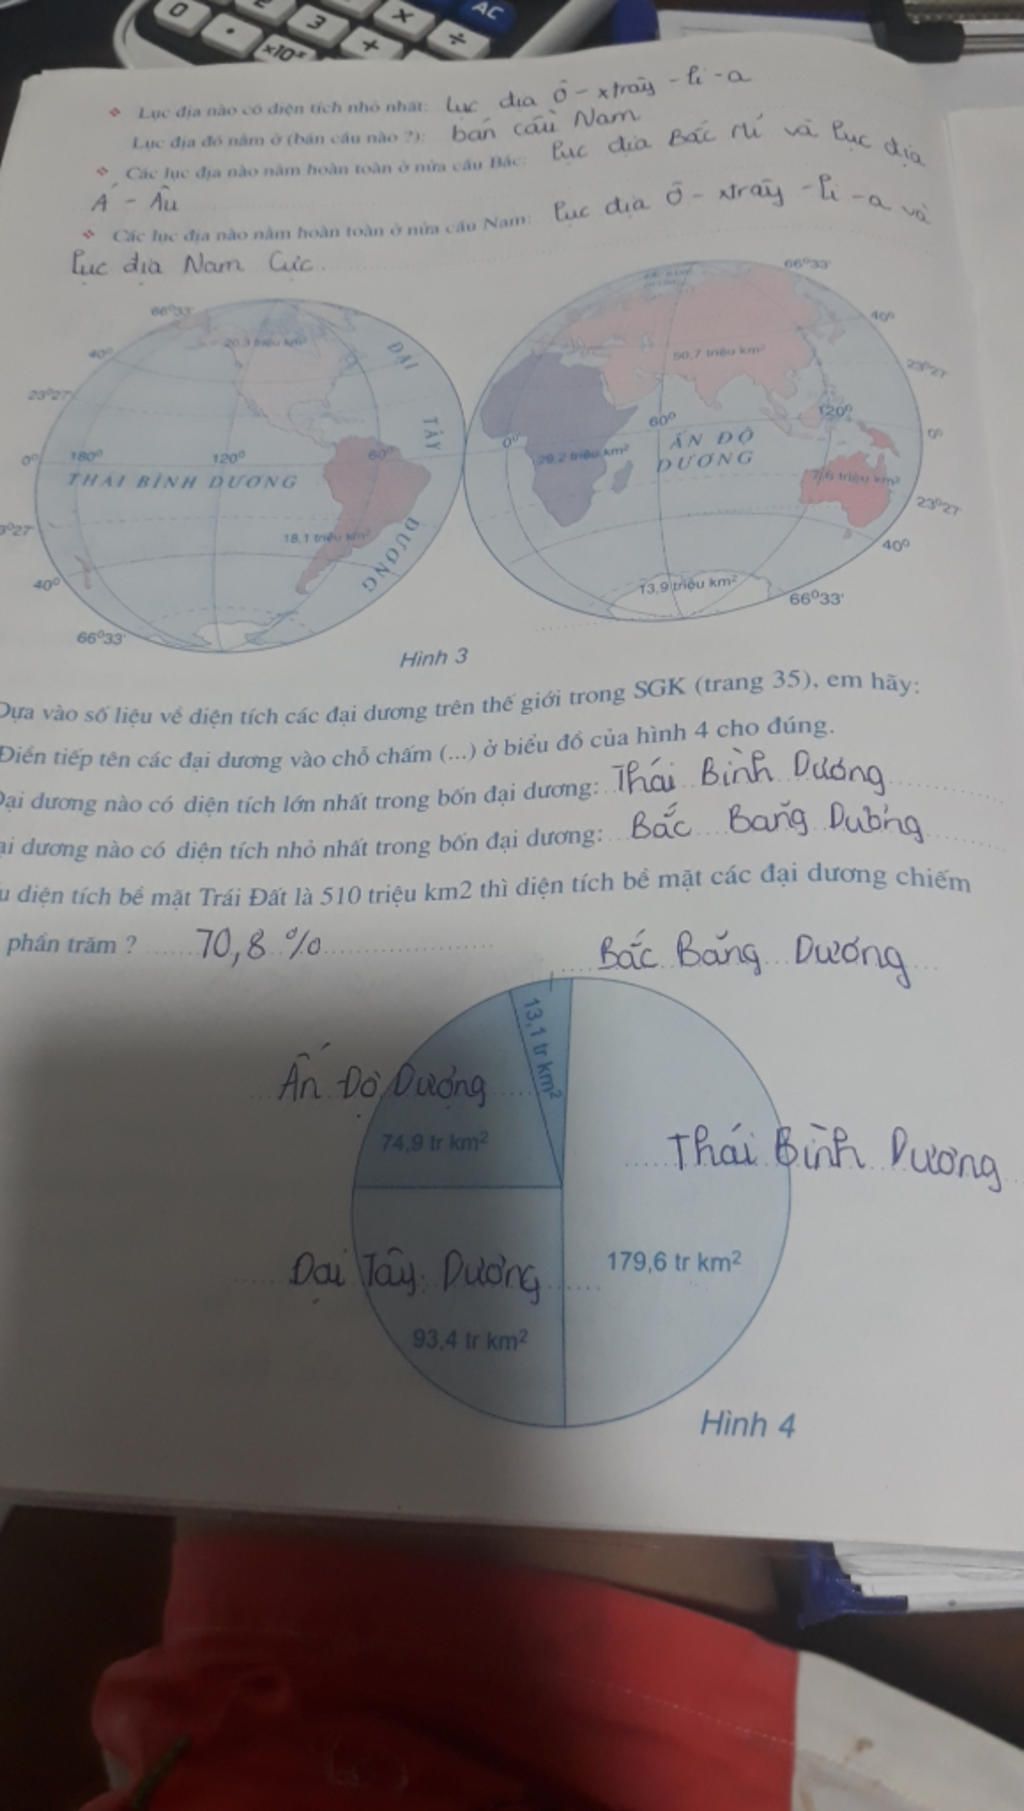 0
2
3
×
AC
.
×10ˣ
+
÷
❖ Lục địa nào có diện tích nhỏ nhất: Lục địa Ô - xtrây - li - a
Lục địa đó nằm ở (bán cầu nào ?): bán cầu Nam
❖ Các lục địa nào nằm hoàn toàn ở nửa cầu Bắc: Lục địa Bắc Mĩ và lục địa
Á - Âu
❖ Các lục địa nào nằm hoàn toàn ở nửa cầu Nam: Lục địa Ô - xtrây - li - a và
lục địa Nam Cực.
66⁰33'
40⁰
23⁰27'
0⁰
3⁰27'
40⁰
66⁰33'
20,3 triệu km²
180⁰
120⁰
60⁰
THÁI BÌNH DƯƠNG
18,1 triệu km²
ĐẠI
TÂY
DƯƠNG
66⁰33'
40⁰
23⁰27'
0⁰
23⁰27'
40⁰
66⁰33'
50,7 triệu km²
0⁰
60⁰
120⁰
29,2 triệu km²
ẤN ĐỘ
DƯƠNG
7,6 triệu km²
13,9 triệu km²
Hình 3
Dựa vào số liệu về diện tích các đại dương trên thế giới trong SGK (trang 35), em hãy:
Điền tiếp tên các đại dương vào chỗ chấm (...) ở biểu đồ của hình 4 cho đúng.
Đại dương nào có diện tích lớn nhất trong bốn đại dương: Thái Bình Dương
ại dương nào có diện tích nhỏ nhất trong bốn đại dương: Bắc Băng Dương
u diện tích bề mặt Trái Đất là 510 triệu km2 thì diện tích bề mặt các đại dương chiếm
phần trăm ? 70,8 %
Bắc Băng Dương
13,1 tr km²
Ấn Độ Dương
74,9 tr km²
Thái Bình Dương
179,6 tr km²
Đại Tây Dương
93,4 tr km²
Hình 4